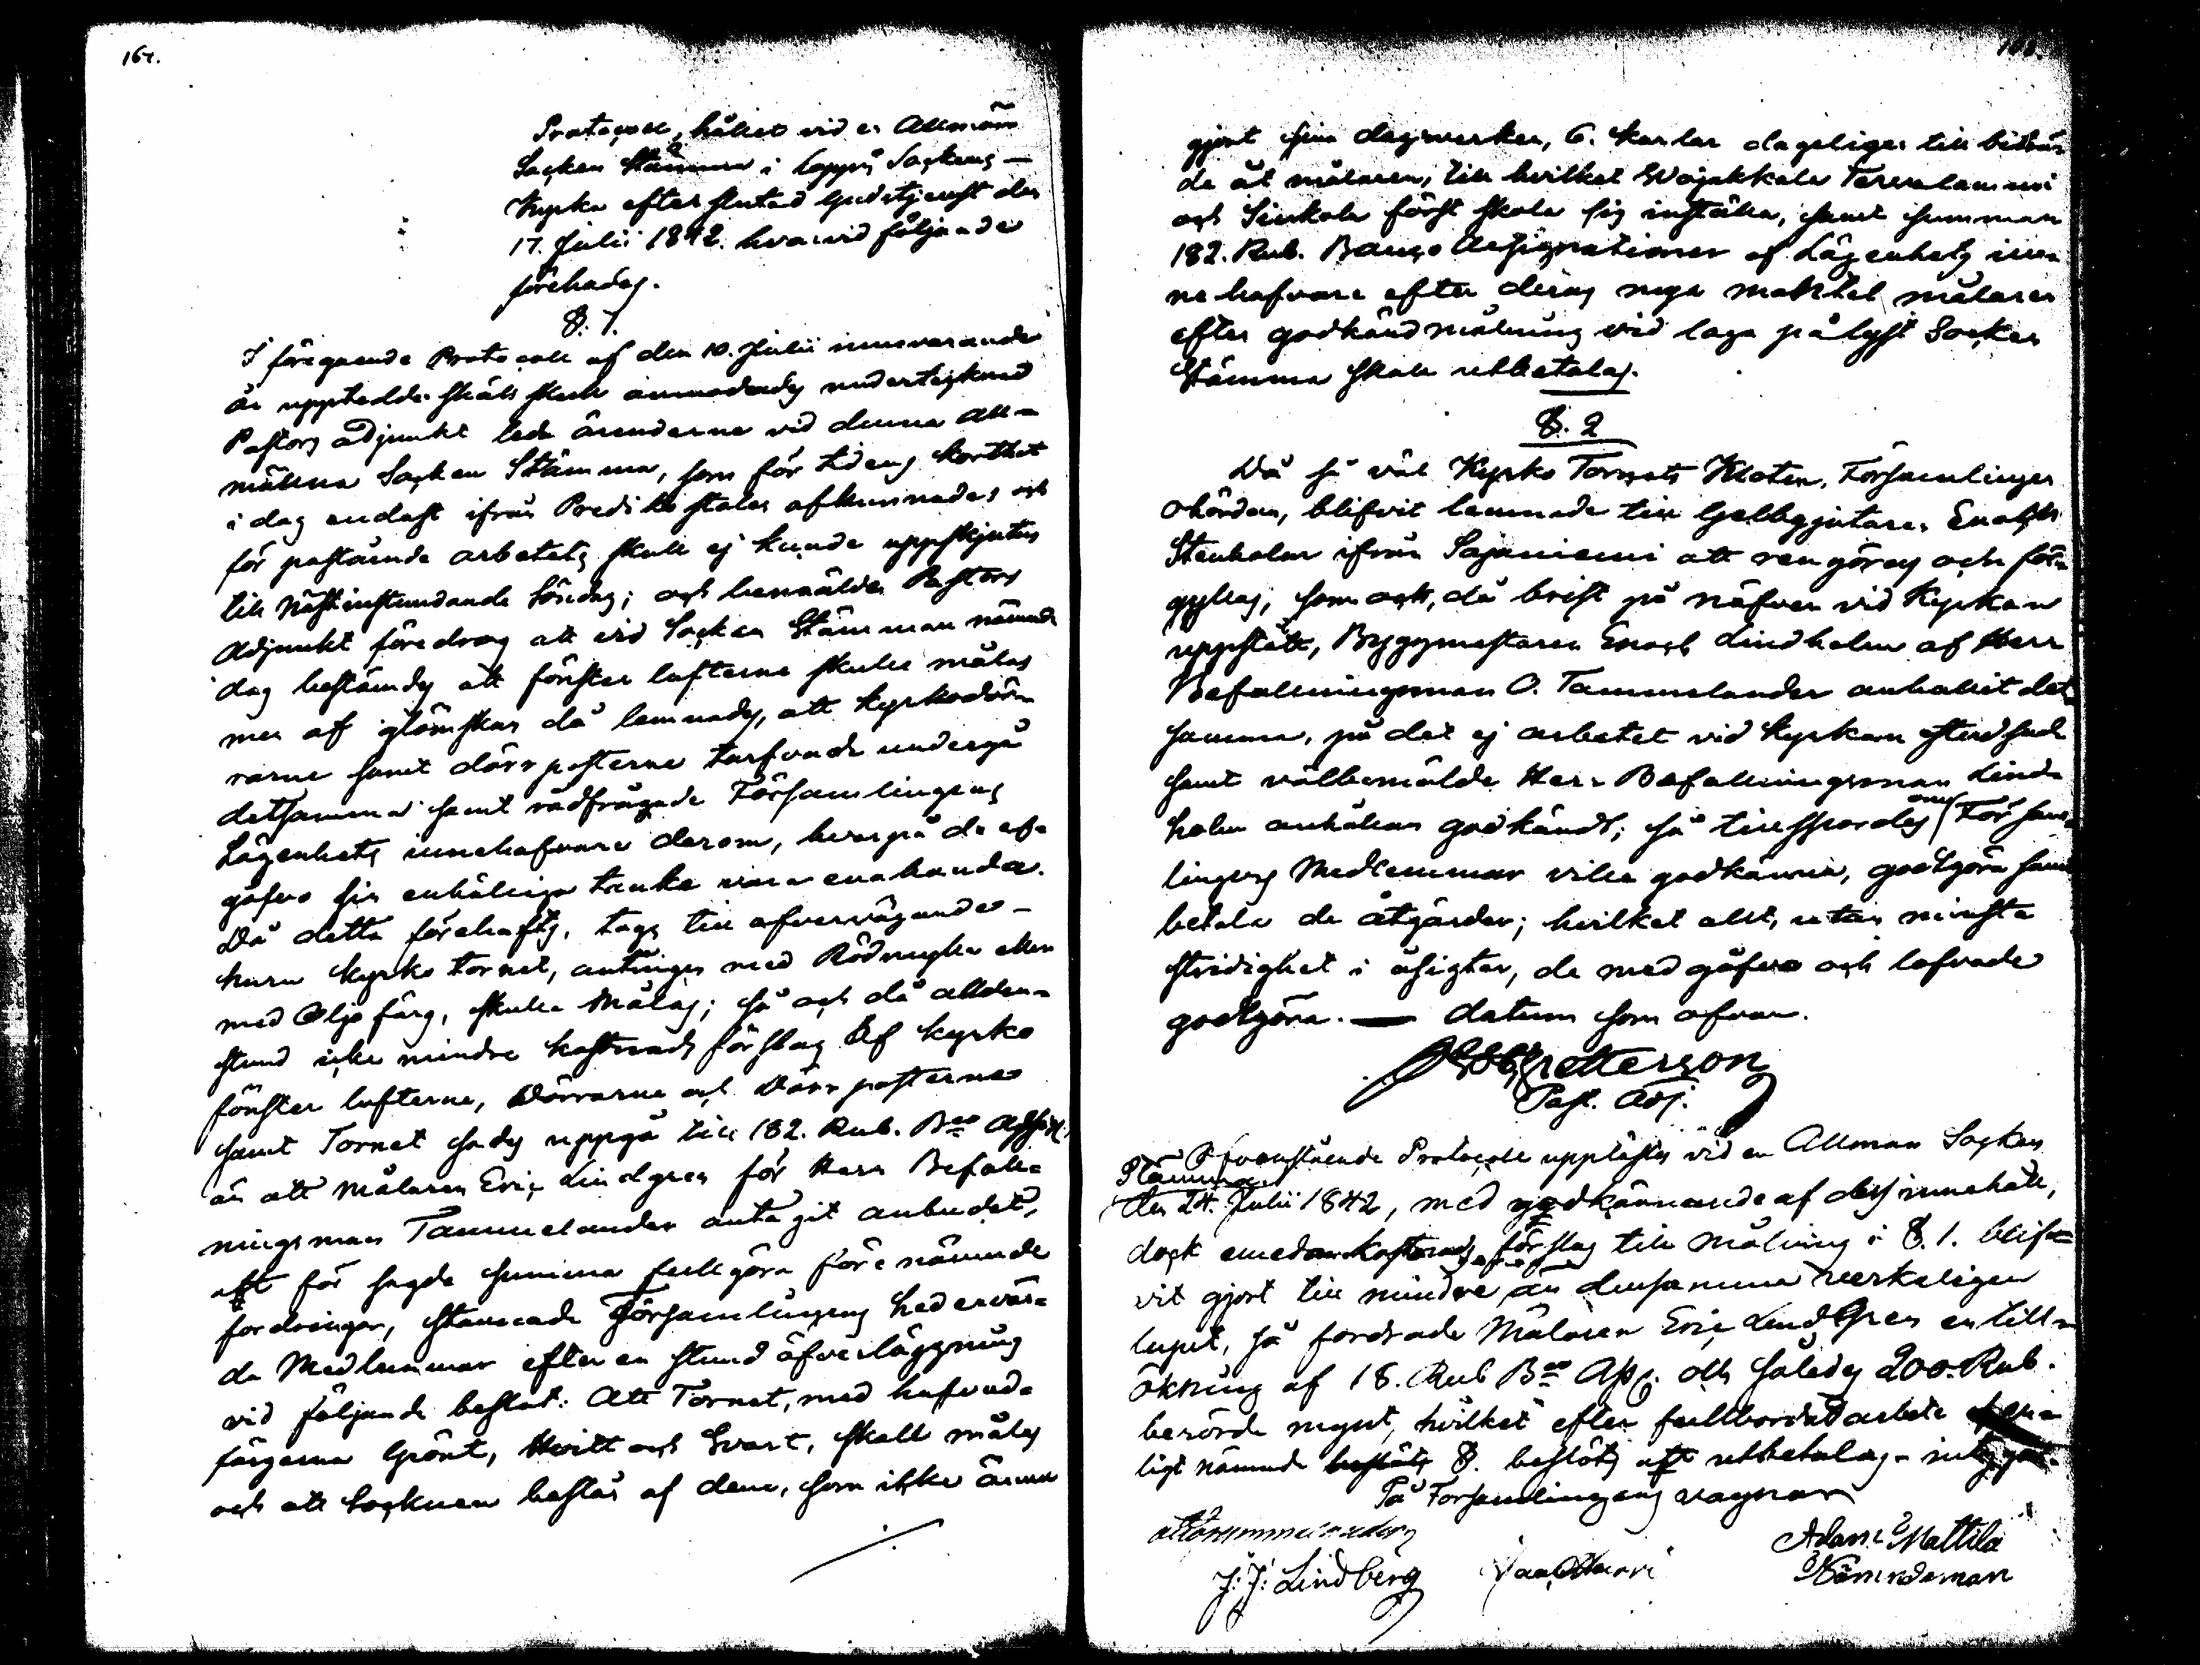 167.
Protocoll, hållit vid en Allmän
Socken Stämma i Loppis Sockens
Kyrka efter slutad Gudstjenst den
17. Julii 1842. hvarvid följande
förehades.
§. 1.
I föregående Protocoll af den 10. Julii innevarande
år upptedde skäls skull anmodades undertecknad
Pastors adjunkt leda ärenderne vid denna all-
männa Socken Stämma, som för tidens korthet
i dag endast ifrån Predikstolen afkunnades och
för påstående arbetets skull ej kunde uppskjutas
till nästinstundande Söndag; och bemälde Pastors
Adjunkt föredrog att vid Socken Stämman nämnde
dag bestämdes att fönster lufterne skulle målas
men af glömskan då lemnades, att kyrkodör-
rarne samt dörr posterne tarfvade undergå
detsamma samt rådfrågade Församlingens
Lägenhets innehafvare derom, hvarpå de af-
gåfvo sin enhälliga tanke vara enahanda.
Då detta förehafts, togs till öfvervägande
huru kyrko tornet, antingen med Rödmylla eller
med Oljo färg, skulle Målas; så och då allden-
stund icke mindre kostnads förslag Af kyrko
fönster lufterne, Dörrarne och Dörr posterne
samt Tornet sades uppgå till 182. Rub. Bco Assign.
än att målaren Eric Lindgren för Herr Befall-
ningsman Tammelander antagit anbudet,
att för sagde summa fullgöra förenämnde
fordringar, stannade Församlingens hedervär-
da Medlemmar efter en stund öfverläggning
vid följande beslut: Att Tornet, med hufvud-
färgerna Grönt, Hvitt och Svart, skall målas
och att Socknen beslår af dem, som icke ännu
gjort sin dagsverken, 6. karlar dageligen till biträ-
de åt målaren, till hvilket Wojakkala Tervalammi
och Siukola först skola sig inställa, samt summan
182. Rub. Banco Assignationer af Lägenhets in-
nehafvare efter deras nya mantal målaren
efter godkänd målning vid laga pålyst Socken
Stämma skall utbetalas.
§. 2
Då så väl Kyrko Tornets Kloten, Församlingen
ohörden, blifvit lemnade till Gelbgjutaren Enoch
Stenholm ifrån Sajaniemi att rengöras och för-
gyllas, som ock, då brist på näfver vid Kyrkan
uppstått, Byggmästaren Enoch Lindholm af Herr
Befallningsman O. Tammelander anhållit det-
samma, på det ej arbetet vid kyrkan
samt välbemälde Herr Befallningsman Lind-
holm anhållan godkändt; så tillspordes om Försam-
lingens Medlemmar ville godkänna, godtgöra samt
betala de åtgärder; hvilket allt, utan minsta
stridighet i åsigter, de medgåfvo och lofvade
godtgöra. — datum som ofvan.
Petterson
Past. Adj.
Ofvanstående Protocoll upplästes vid en Allmän Socken
Stämma
den 24. Julii 1842, med godkännande af dess innehåll,
dock emedan kostnads förslag till Målning i §. 1. blif-
vit gjort till mindre än densamma verkeligen
lupit, så fordrade Målaren Eric Lindgren en till-
ökning af 18. Rub Bco Ass. och således 200. Rub.
berörde mynt, hvilket efter fullbordat arbete
ligt nämnde §. beslöts att utbetalas
På Församlingens vägnar
J: J: Lindberg
Adam Mattila
Nämndeman